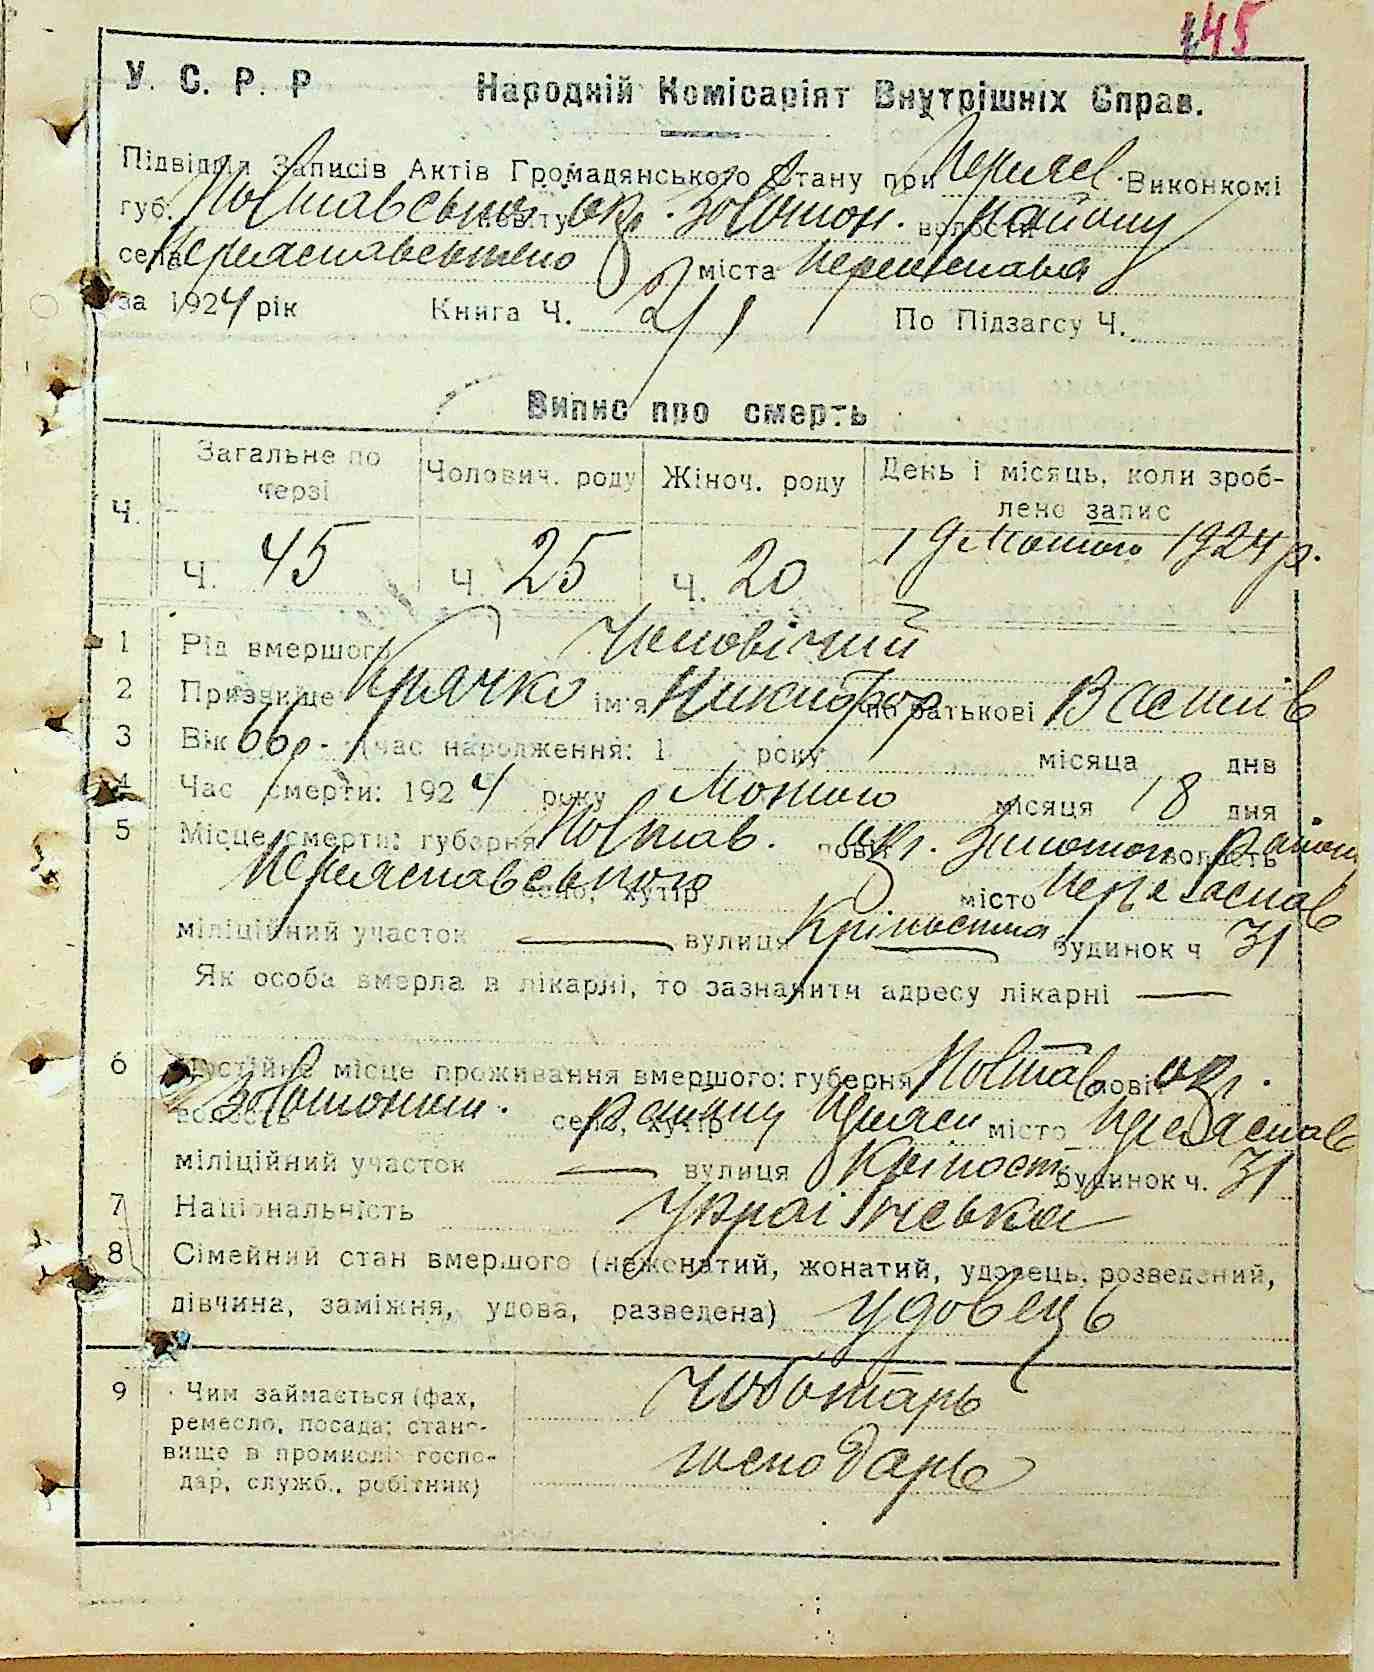 145
У. С. Р. Р Народній Комісаріят Внутрішніх Справ.
Підвідділ Записів Актів Громадянського Стану при Переяс. Виконкомі
губ. Полтавської повіту окр. Золотон. волости району
села Переяславського міста Переяслава
за 1924 рік Книга Ч. По Підзагсу Ч.
Випис про смерть
Ч. Загальне по черзі Чолович. роду Жіноч. роду День і місяць, коли зроб-
лено запис
Ч. 45 Ч. 25 Ч. 20 19 Лютого 1924 р.
1 Рід вмершого Чоловічий
2 Призвіще Крячко ім'я Никифор по батькові Васил�ів
3 Вік 66 р. час народження: 1 року місяца днв
4 Час смерти: 1924 року Лютого місяця 18 дня
5 Місце смерти: губерня Полтав. повіт окр. Золотон волость район
Переяславського село, хутір місто Переяслав
міліційний участок — вулиця Кріпостна будинок ч 31
Як особа вмерла в лікарні, то зазначити адресу лікарні —
6 Постійне місце проживання вмершого: губерня Полтав повіт окр.
волость Золотонш. село, хутір району Переяс місто Переяслав
міліційний участок — вулиця Кріпост будинок ч. 31
7 Національність Українська
8 Сімейний стан вмершого (нежонатий, жонатий, удовець, розведений,
дівчина, заміжня, удова, разведена) удовець
9 Чим займається (фах, чоботарь
ремесло, посада; стано-
вище в промислі: госпо- господарь
дар, служб., робітник)